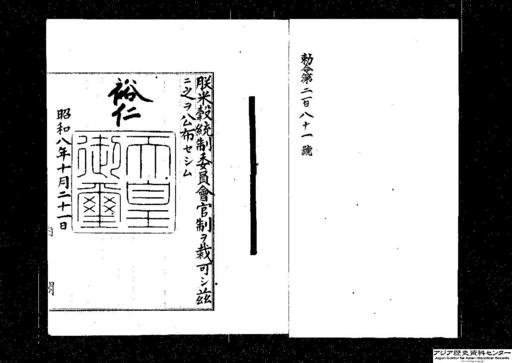 勅令第二百八十一號
朕米穀統制委員會官制ヲ裁可シ茲
ニ之ヲ公布セシム
裕仁
天皇御璽
昭和八年十月二十一日
アジア歴史資料センター
Japan Center for Asian Historical Records